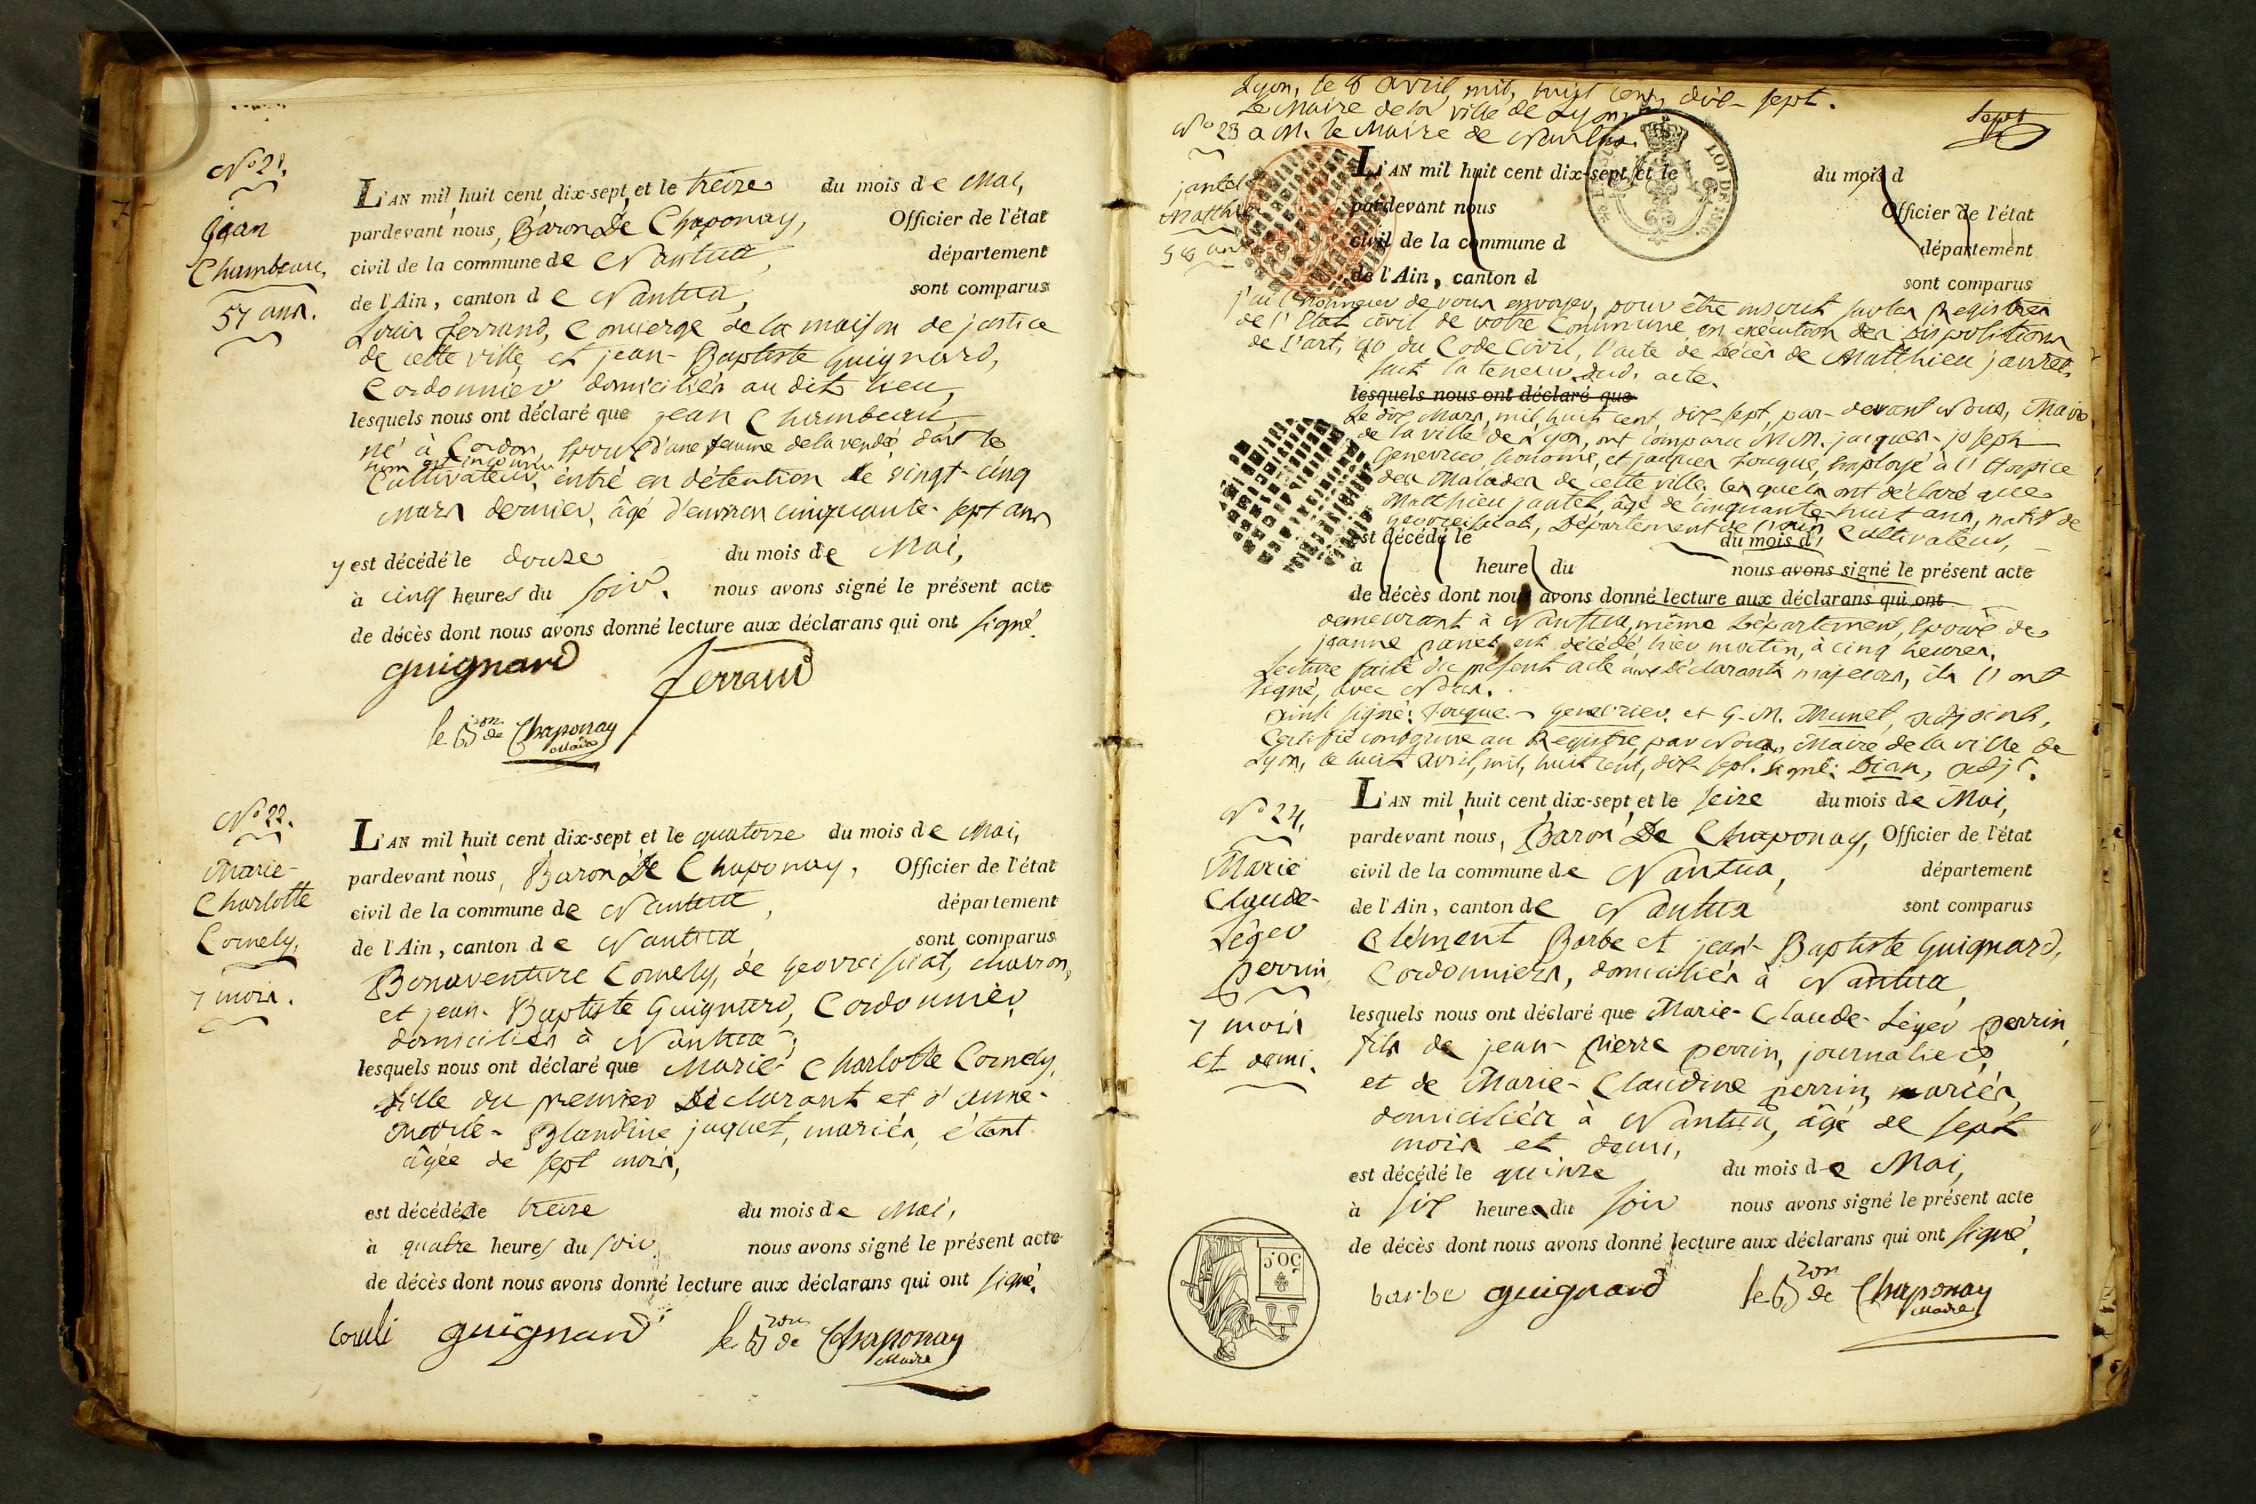 No 21.
Jean
Chambeau,
57 ans.
L'AN mil huit cent dix-sept et le treize du mois de Mai,
pardevant nous, Baron De Chaponay, Officier de l'état
civil de la commune de Nantua, département
de l'Ain, canton de Nantua, sont comparus
Louis ferrand, Concierge de la maison de justice
de cette ville, et jean-Baptiste Guignard,
Cordonnier domiciliés au dit lieu,
lesquels nous ont déclaré que jean Chambeau,
né à Cordon, époux d'une femme de la vendée dont le
nom est inconnu
Cultivateur, entré en détention le vingt-cinq
mars dernier, âgé d'environ cinquante-sept ans
y est décédé le douze du mois de Mai,
à cinq heures du soir. nous avons signé le présent acte
de décès dont nous avons donné lecture aux déclarans qui ont signé.
guignard ferrand
le Bon de Chaponay
Maire
No 22.
Marie-
Charlotte
Cornely,
7 mois.
L'AN mil huit cent dix-sept et le quatorze du mois de Mai,
pardevant nous, Baron De Chaponay, Officier de l'état
civil de la commune de Nantua, département
de l'Ain, canton de Nantua, sont comparus
Bonaventure Cornely, de geovreissiat, charron,
et jean-Baptiste Guignard, Cordonnier,
domiciliés à Nantua,
lesquels nous ont déclaré que Marie-Charlotte Cornely,
fille du premier Déclarant et d'anne-
marie-Blandine jaquet, mariés, étant
âgée de sept mois,
est décédée le treize du mois de Mai,
à quatre heures du soir nous avons signé le présent acte
de décès dont nous avons donné lecture aux déclarans qui ont signé.
guignard le Bon de Chaponay
Maire
Lyon, le 8 avril, mil, huit cent, dix-sept.
Le Maire de la ville de Lyon,
No 23 à M. le Maire de Nantua.
Sept
jantet
Matthieu
58 ans
L'AN mil huit cent dix-sept et le du mois d
LOI DE
pardevant nous Officier de l'état
civil de la commune d département
de l'Ain, canton d sont comparus
j'ai l'honneur de vous envoyer, pour être inscrit sur les Registres
de l'Etat civil de votre Commune en exécution des dispositions
de l'art. 80 du Code Civil, l'acte de Décès de Matthieu jantet,
suit la teneur dud. acte.
lesquels nous ont déclaré que
Le dix Mars, mil, huit cent, dix-sept, par-devant Nous, Maire
de la ville de Lyon, ont comparu MM. jacques-joseph
Genevrier, économe, et jacques Fouque, Employé à l'Hospice
des Malades de cette ville, lesquels ont déclaré que
Matthieu jantet, âgé de cinquante-huit ans, natif de
geovreissiat, Département de l'ain, Cultivateur,
est décédé le du mois d
à heure du nous avons signé le présent acte
de décès dont nous avons donné lecture aux déclarans qui ont
demeurant à Nantua, même Département, époux de
jeanne panet, est décédé, hier matin, à cinq heures.
Lecture faite du présent acte aux Déclarants majeurs, ils l'ont
signé, avec Nous.
ainsi signé: Fouque - genevrier et G. M. Munet, adjoint,
Certifié conforme au Registre, par Nous, Maire de la ville de
Lyon, le huit avril, mil, huit cent, dix-sept. signé: Dian, adjt.
No 24.
Marie
Claude-
Léger
perrin,
7 mois
et demi.
L'AN mil huit cent dix-sept et le seize du mois de Mai,
pardevant nous, Baron De Chaponay, Officier de l'état
civil de la commune de Nantua, département
de l'Ain, canton de Nantua sont comparus
Clément Barbe et jean-Baptiste Guignard,
Cordonniers, domiciliés à Nantua,
lesquels nous ont déclaré que Marie-Claude-Léger perrin,
fils de jean-pierre perrin, journalier,
et de Marie-Claudine perrin, mariés,
domiciliés à Nantua, âgé de sept
mois et demi,
est décédé le quinze du mois de Mai,
à six heures du soir nous avons signé le présent acte
de décès dont nous avons donné lecture aux déclarans qui ont signé.
50C
barbe guignard le Bon de Chaponay
Maire